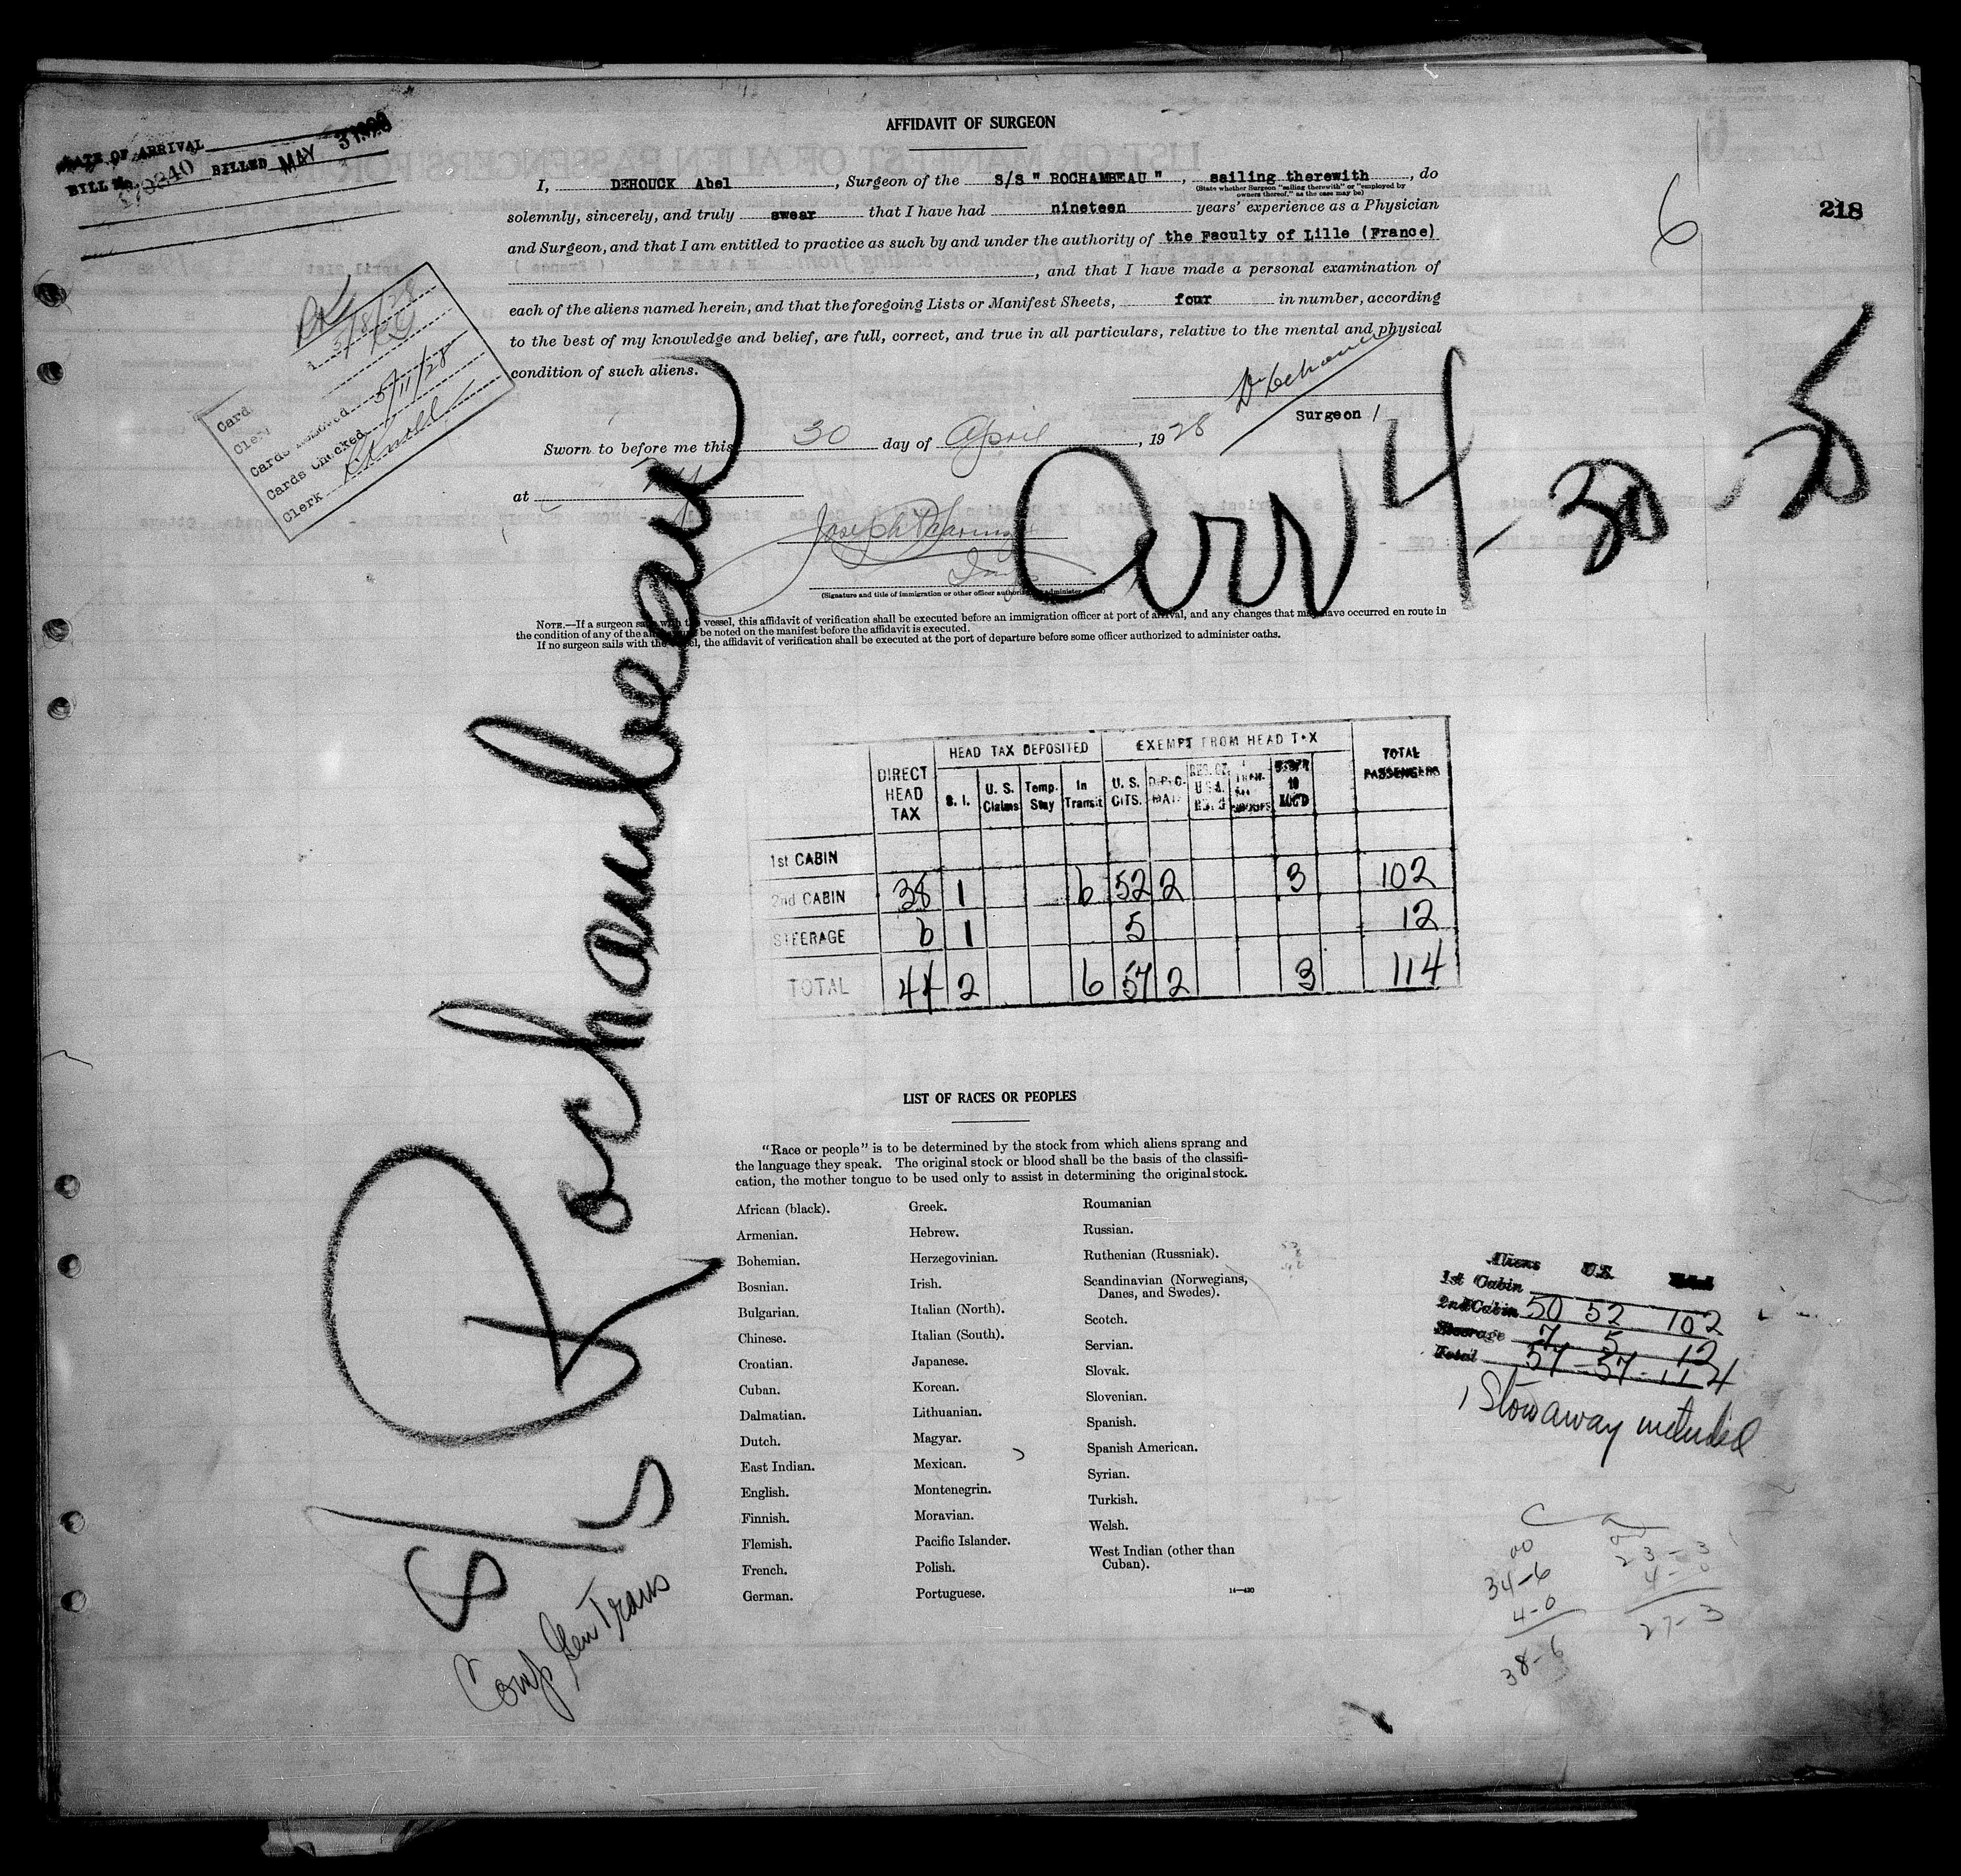 AFFIDAVIT OF SURGEON
DATE OF ARRIVAL
BILL No. BILLED MAY
218
6
I, DEHOUCK Abel, Surgeon of the S/S " ROCHAMBEAU ", sailing therewith, do
(State whether Surgeon "sailing therewith" or "employed by
owners thereof," as the case may be)
solemnly, sincerely, and truly swear that I have had nineteen years' experience as a Physician
and Surgeon, and that I am entitled to practice as such by and under the authority of the Faculty of Lille (France)
, and that I have made a personal examination of
each of the aliens named herein, and that the foregoing Lists or Manifest Sheets, four in number, according
to the best of my knowledge and belief, are full, correct, and true in all particulars, relative to the mental and physical
condition of such aliens.
Surgeon
Sworn to before me this 30 day of April, 1928
at
(Signature and title of immigration or other officer authorized to administer
Card
Clerk
Cards
Cards Checked 5/11/28
Clerk
Arr 4-30-28
NOTE.—If a surgeon sails with the vessel, this affidavit of verification shall be executed before an immigration officer at port of arrival, and any changes that may have occurred en route in
the condition of any of the aliens be noted on the manifest before the affidavit is executed.
If no surgeon sails with the vessel, the affidavit of verification shall be executed at the port of departure before some officer authorized to administer oaths.
S/S Rochambeau
Comp Gen Trans
DIRECT HEAD TAX HEAD TAX DEPOSITED EXEMPT FROM HEAD TAX TOTAL PASSENGERS
S. I. U. S. Claims Temp. Stay In Transit U. S. CITS.
1st CABIN
2nd CABIN 38 1 6 52 2 3 102
STEERAGE 6 1 5 12
TOTAL 44 2 6 57 2 3 114
LIST OF RACES OR PEOPLES
"Race or people" is to be determined by the stock from which aliens sprang and
the language they speak. The original stock or blood shall be the basis of the classifi-
cation, the mother tongue to be used only to assist in determining the original stock.
African (black).
Armenian.
Bohemian.
Bosnian.
Bulgarian.
Chinese.
Croatian.
Cuban.
Dalmatian.
Dutch.
East Indian.
English.
Finnish.
Flemish.
French.
German.
Greek.
Hebrew.
Herzegovinian.
Irish.
Italian (North).
Italian (South).
Japanese.
Korean.
Lithuanian.
Magyar.
Mexican.
Montenegrin.
Moravian.
Pacific Islander.
Polish.
Portuguese.
Roumanian
Russian.
Ruthenian (Russniak).
Scandinavian (Norwegians,
Danes, and Swedes).
Scotch.
Servian.
Slovak.
Slovenian.
Spanish.
Spanish American.
Syrian.
Turkish.
Welsh.
West Indian (other than
Cuban).
Aliens U.S. Total
1st Cabin
2nd Cabin 50 52 102
Steerage 7 5 12
Total 57 - 57 - 114
1 Stowaway included
00
34-6
4-0
38-6
23-3
4-0
27-3